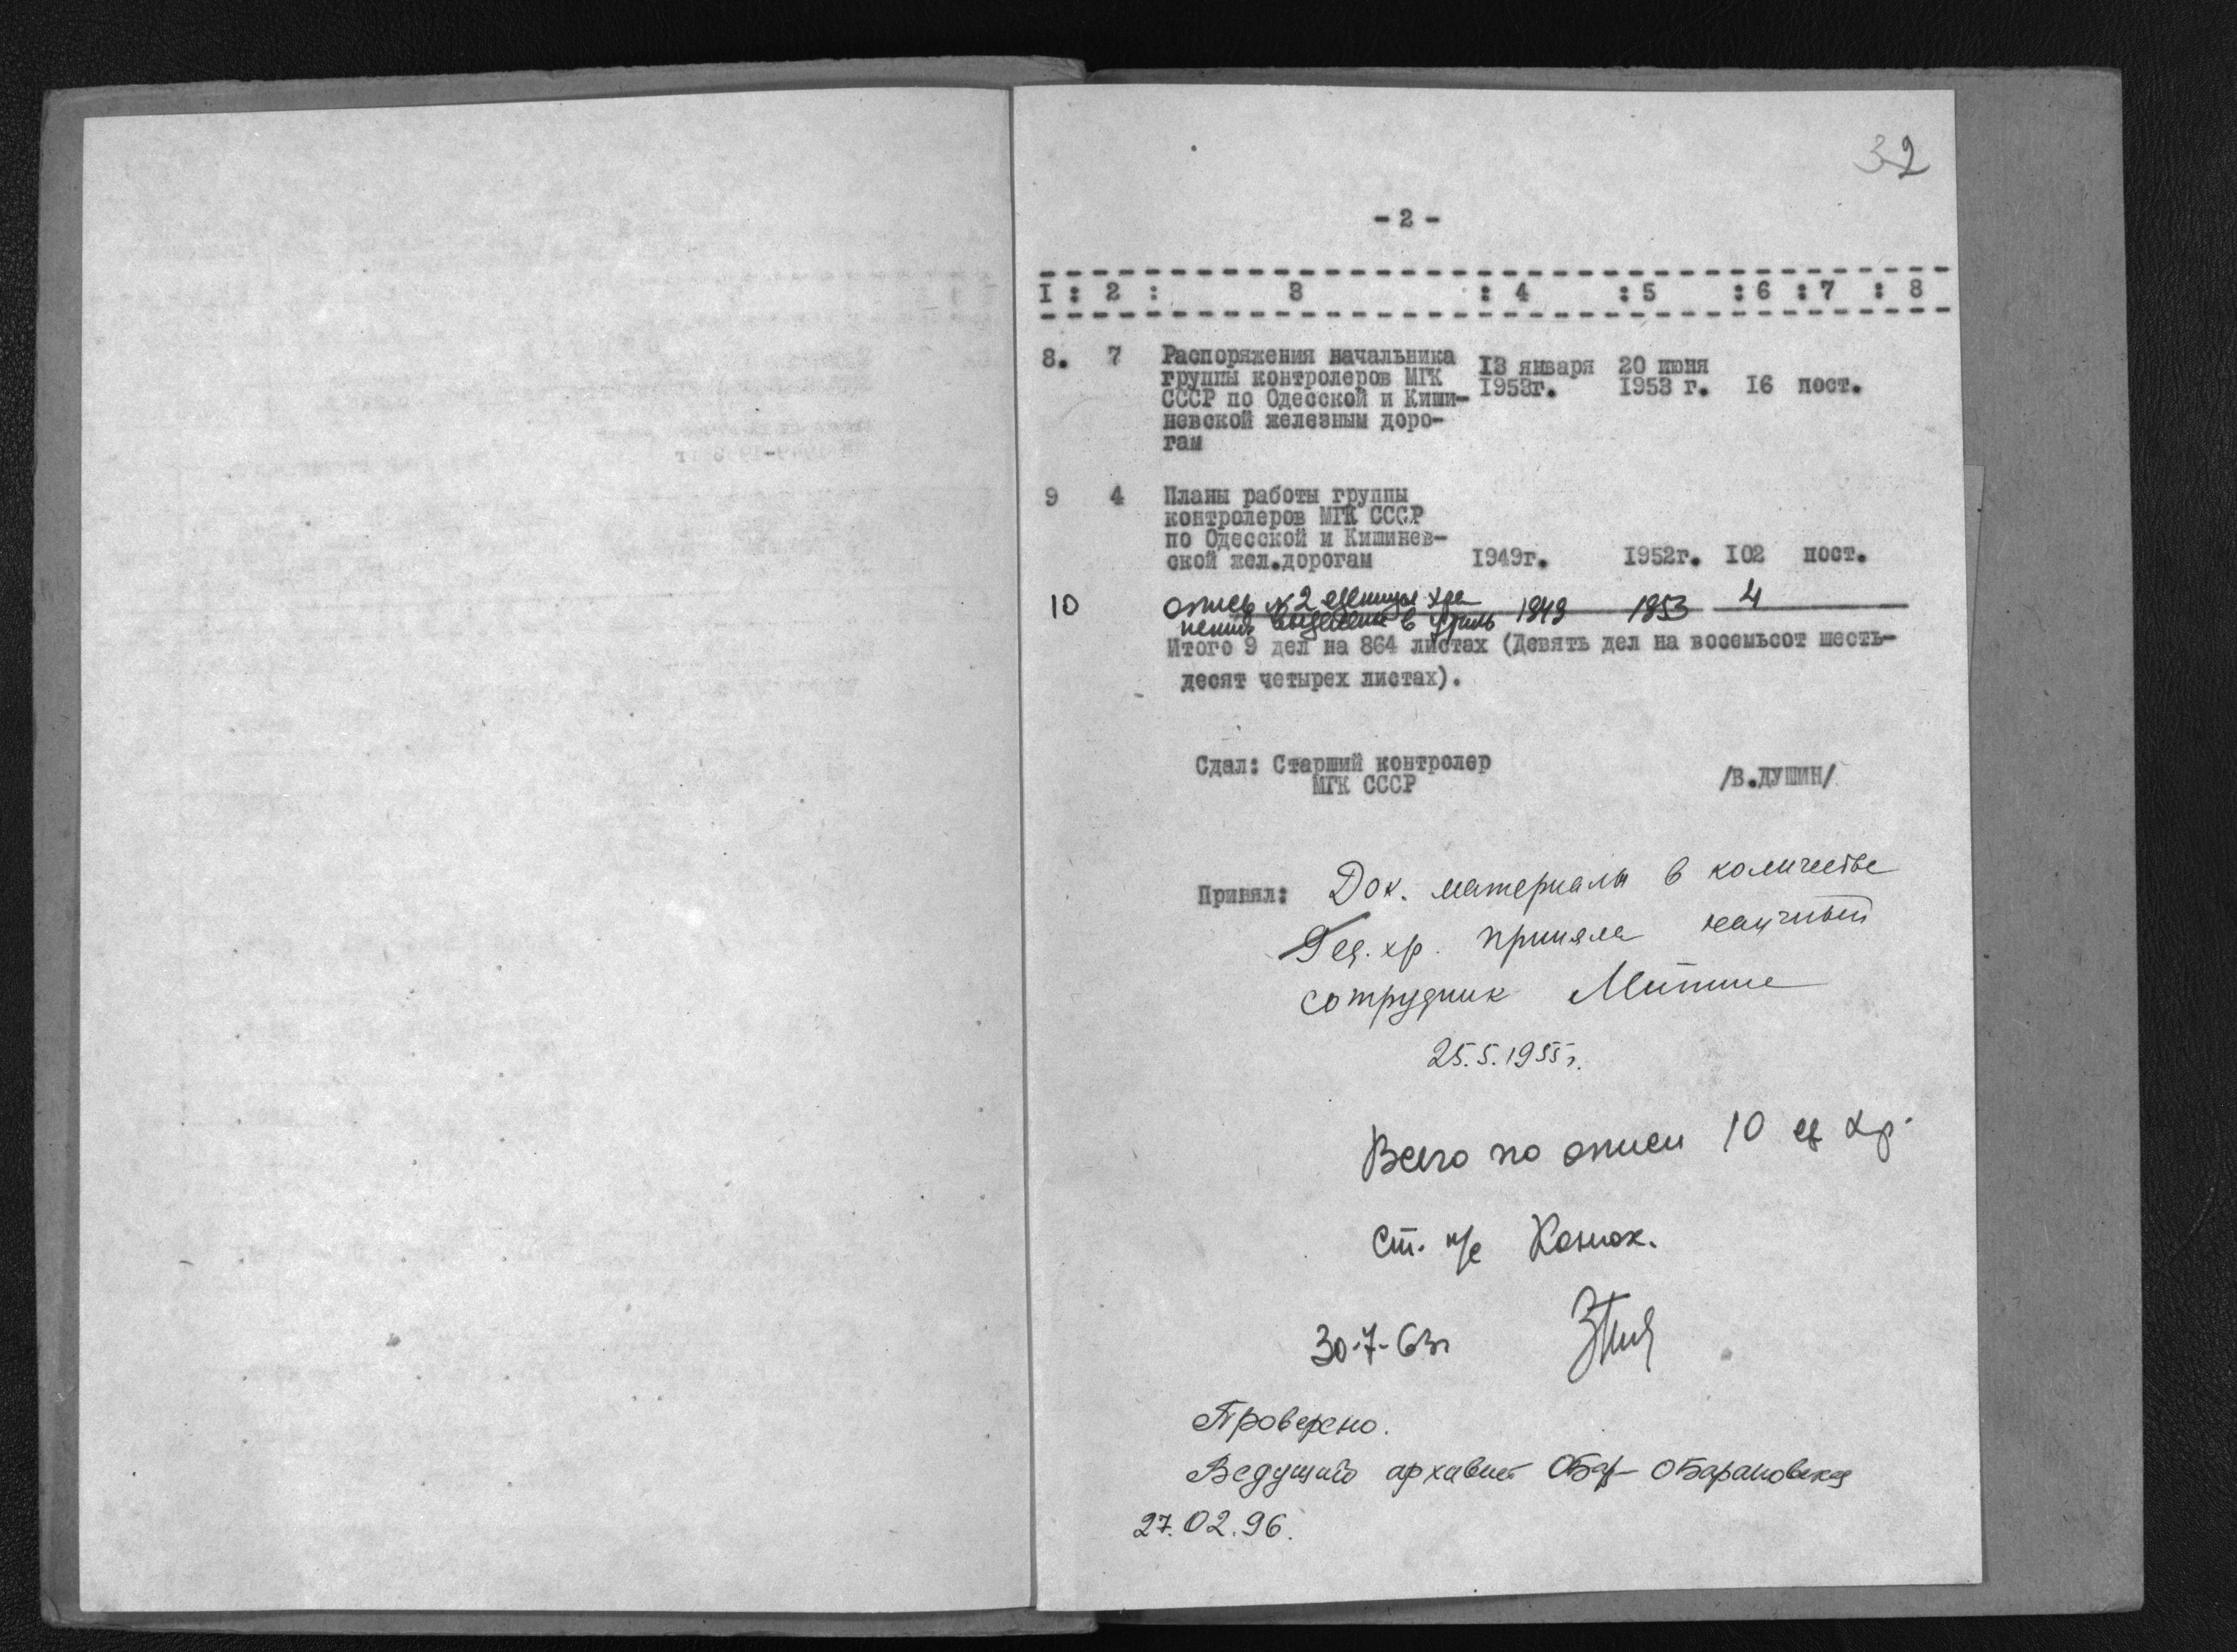 32
- 2 -
I : 2 : 3 : 4 : 5 : 6 : 7 : 8
8. 7 Распоряжения начальника
группы контролеров МГК 13 января 20 июня
СССР по Одесской и Киши- 1953г. 1953 г. 16 пост.
невской железным доро-
гам
9 4 Планы работы группы
контролеров МГК СССР
по Одесской и Кишинев-
ской жел.дорогам 1949г. 1952г. 102 пост.
10 опись №2 единицы хра 1949 1953 4
нения в
Итого 9 дел на 864 листах (Девять дел на восемьсот шесть-
десят четырех листах).
Сдал: Старший контролер
МГК СССР /В.ДУШИН/
Принял: Док. материалы в количестве
9 ед. хр. приняла научный
сотрудник
25.5.1955г.
Всего по описи 10 ед хр.
Ст. н/с
30-7-63г
Проверено.
Ведущий архивист ОБар- ОБарановская
27.02.96.